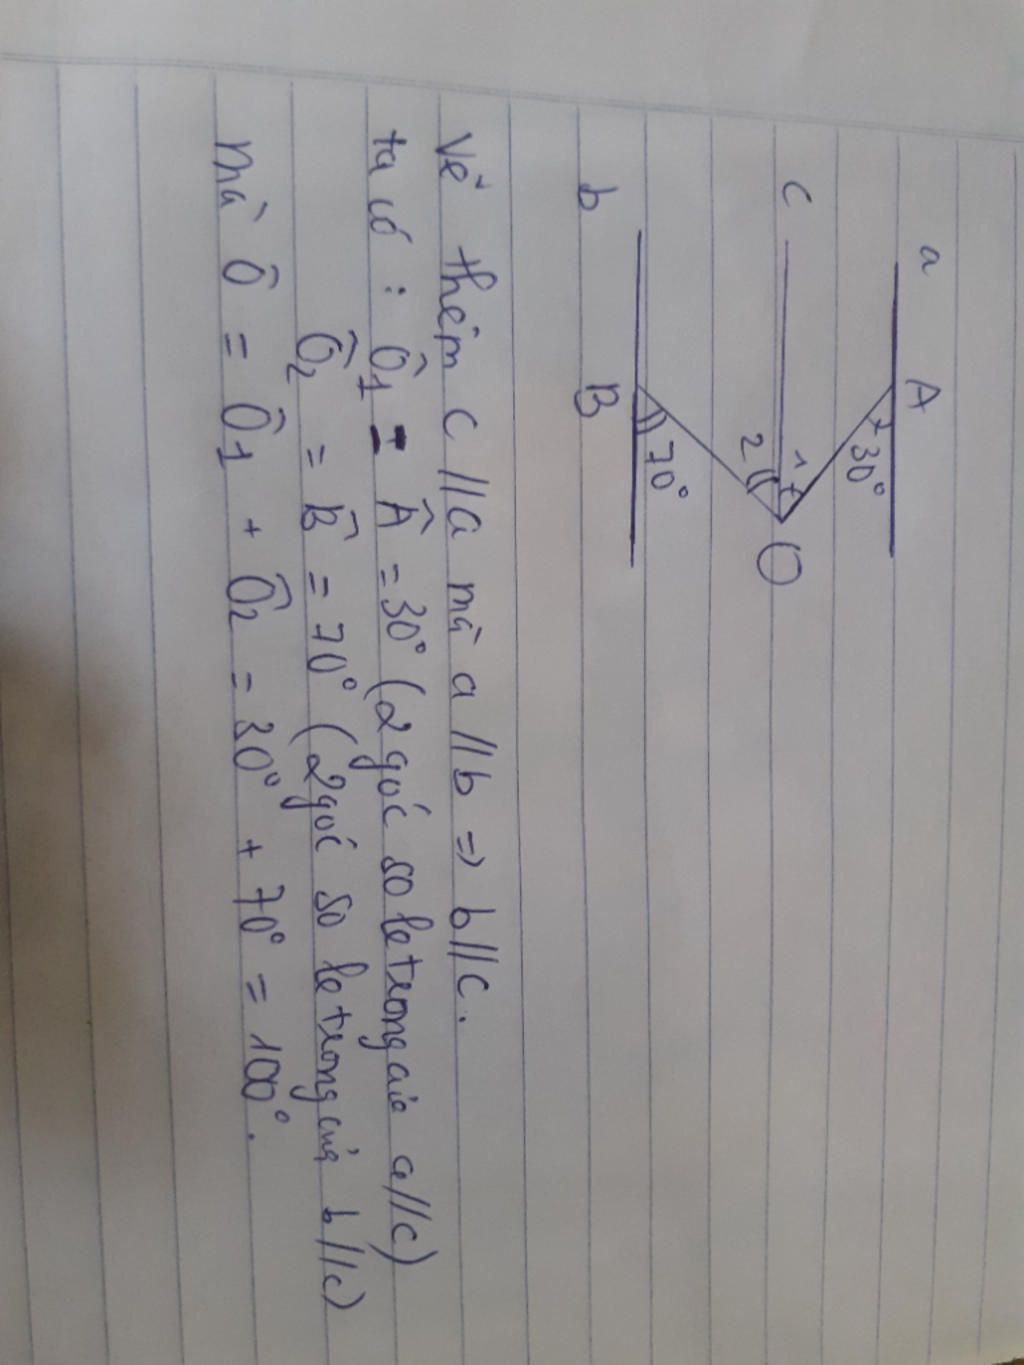 a A
30°
c 1 O
2
70°
b B
Vẽ thêm c // a mà a // b => b // c.
ta có : Ô1 = Â = 30° (2 góc so le trong của a // c)
Ô2 = B̂ = 70° (2 góc so le trong của b // c)
mà Ô = Ô1 + Ô2 = 30° + 70° = 100°.